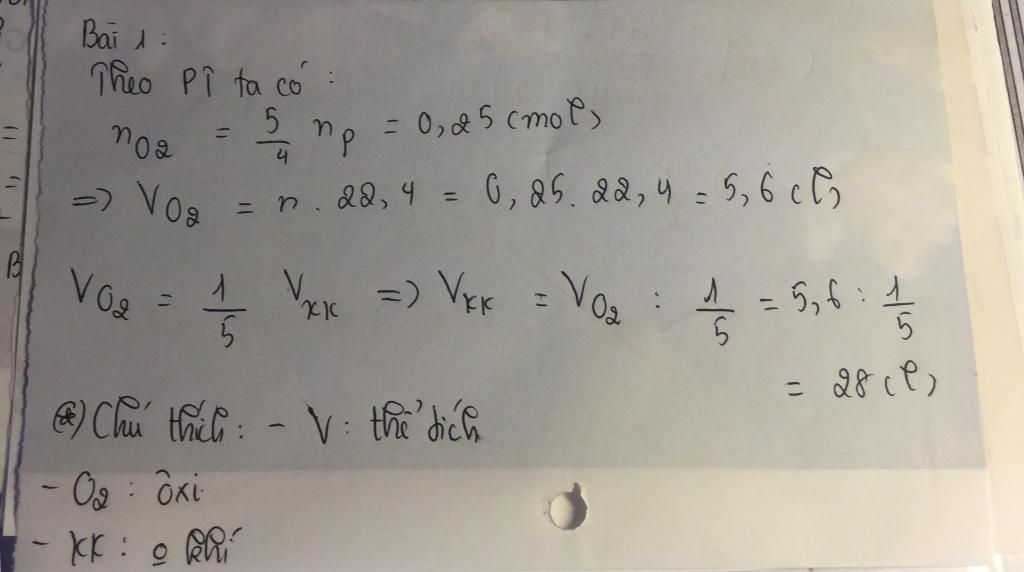 Bài 1:
Theo PT ta có:
n O2 = 5/4 n p = 0,25 (mol)
=> V O2 = n . 22,4 = 0,25 . 22,4 = 5,6 (l)
V O2 = 1/5 V KK => V KK = V O2 : 1/5 = 5,6 : 1/5
= 28 (l)
(*) Chú thích: - V: thể tích
- O2 : ôxi
- KK : o khí